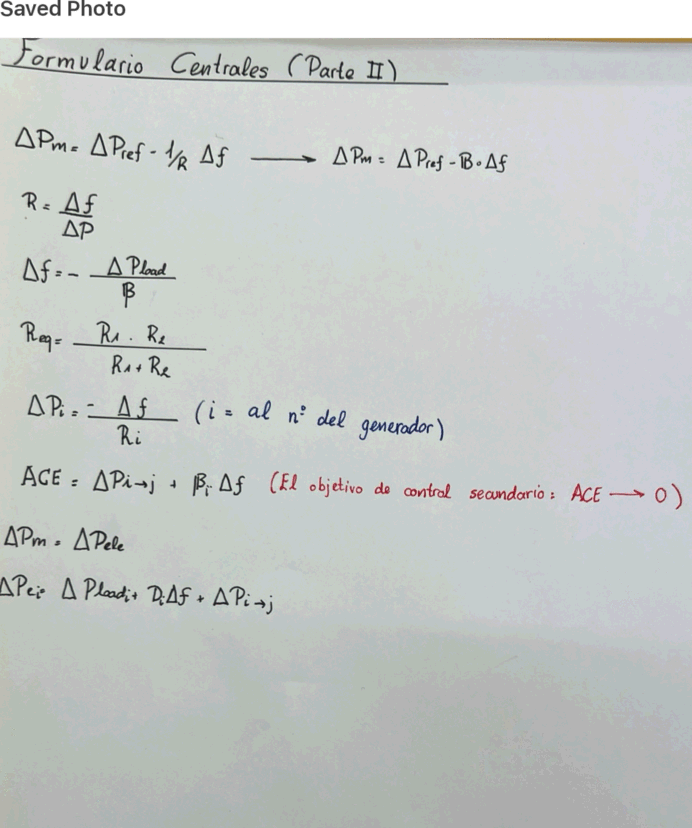 Saved Photo
Formulario Centrales (Parte II)
ΔPm = ΔPref - 1/R Δf ⟶ ΔPm = ΔPref - B·Δf
R = Δf / ΔP
Δf = - ΔPload / β
Req = R1 · R2 / R1 + R2
ΔPi = - Δf / Ri (i = al nº del generador)
ACE = ΔPi→j + βi Δf (El objetivo de control secundario: ACE ⟶ 0)
ΔPm = ΔPele
ΔPei = ΔPloadi + DiΔf + ΔPi→j